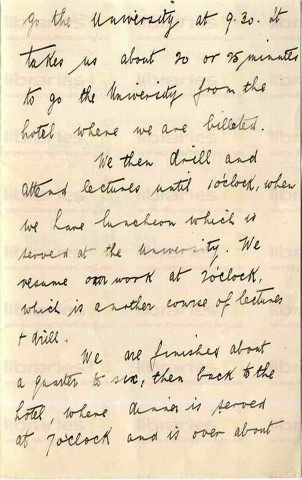 go the University at 9.30. It
takes us about 20 or 25 minutes
to go the University from the
hotel where we are billeted.
We then drill and
attend lectures until 1 o'clock, when
we have luncheon which is
served at the University. We
resume our work at 2 o'clock,
which is another course of lectures
+ drill.
We are finished about
a quarter to six, then back to the
hotel, where dinner is served
at 7 o'clock and is over about